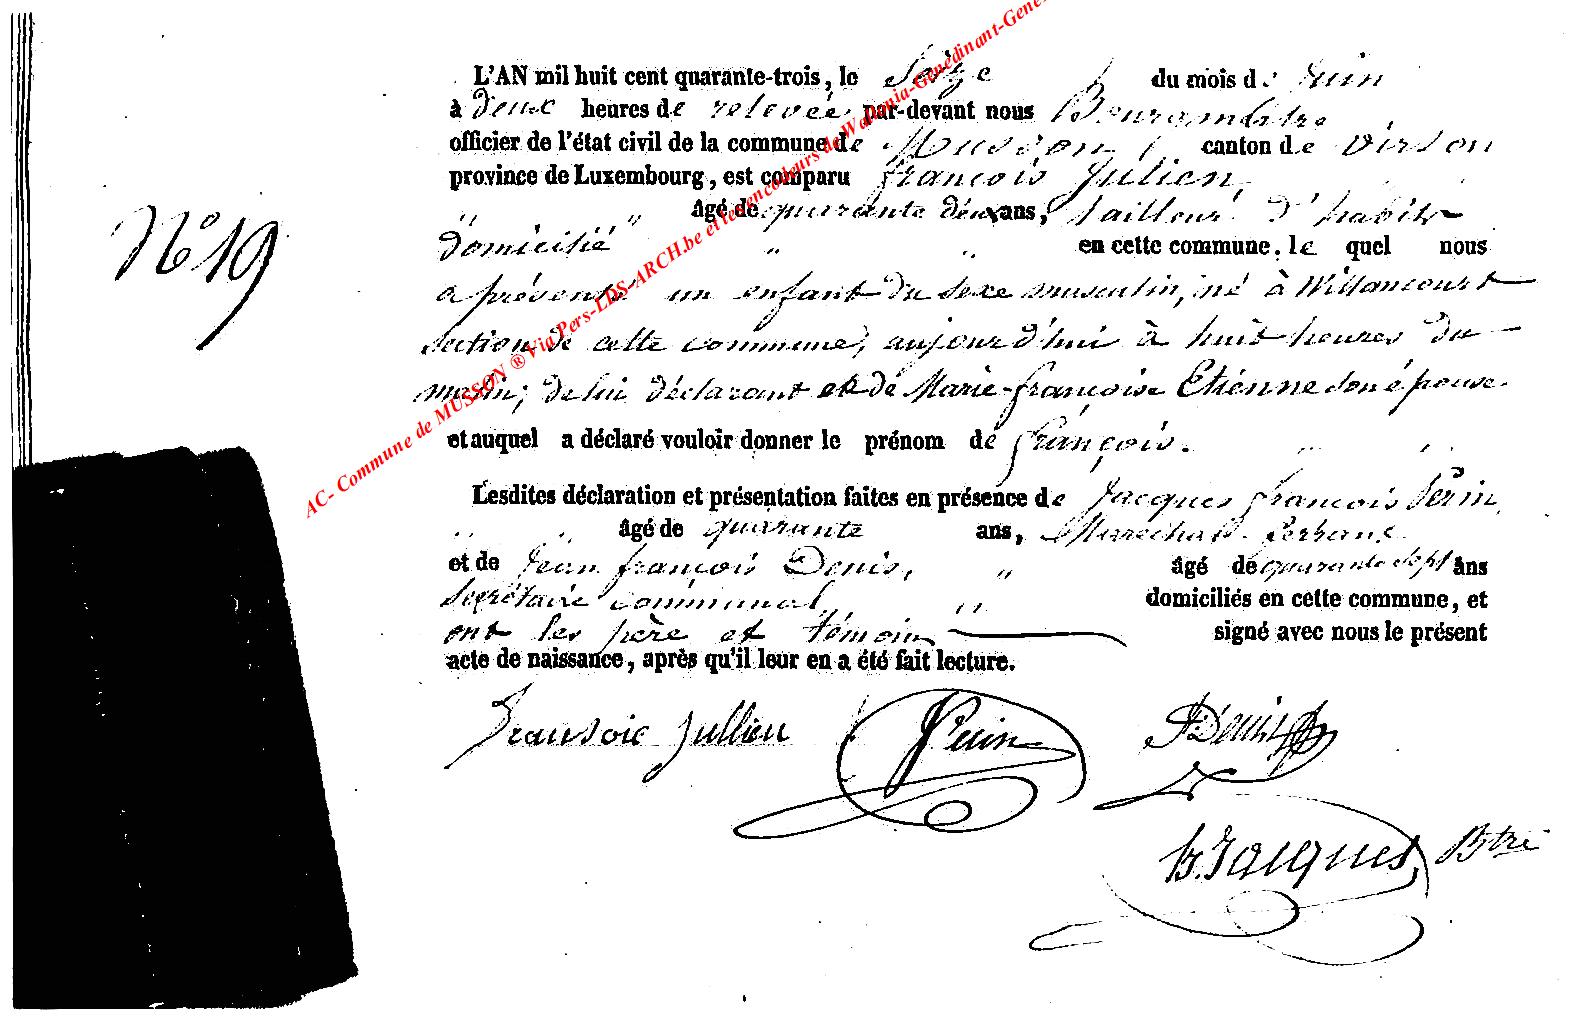 AC- Commune de MUSSON ® Via Pers-LDS-ARCH.be et les encodeurs de Wallonia-Genedinant-Gene
N° 19
L'AN mil huit cent quarante-trois, le Seize du mois de Juin
à deux heures de relevée par-devant nous Bourgmestre
officier de l'état civil de la commune de Musson canton de Virton
province de Luxembourg, est comparu françois Julien
" " âgé de quarante deux ans, tailleur d'habits
domicilié " " en cette commune, le quel nous
a présenté un enfant du sexe masculin, né à Willancourt
section de cette commune, aujourd'hui à huit heures du
matin; de lui déclarant et de Marie-françoise Etienne son épouse.
et auquel a déclaré vouloir donner le prénom de françois.
Lesdites déclaration et présentation faites en présence de Jacques françois Perin,
" " âgé de quarante ans, Maréchal ferrant
et de Jean françois Denis, " âgé de quarante sept ans
secrétaire communal " " domiciliés en cette commune, et
ont les père et témoin signé avec nous le présent
acte de naissance, après qu'il leur en a été fait lecture.
Fransoic Jullien Perin Denis
Jacques, Btre